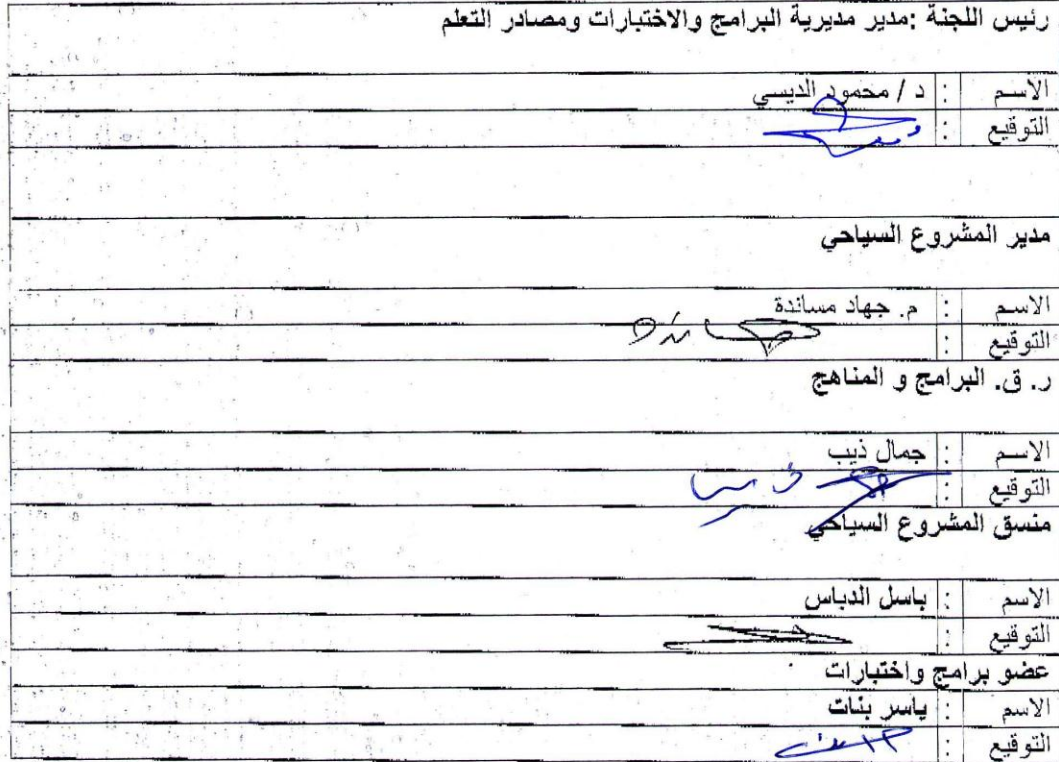 رئيس اللجنة :مدير مديرية البرامج والاختبارات ومصادر التعلم
الاسم : د / محمود الديسي
التوقيع :
مدير المشروع السياحي
الاسم : م. جهاد مساندة
التوقيع :
ر. ق. البرامج و المناهج
الاسم : جمال ذيب
التوقيع :
منسق المشروع السياحي
الاسم : باسل الدباس
التوقيع :
عضو برامج واختبارات
الاسم : ياسر بنات
التوقيع :